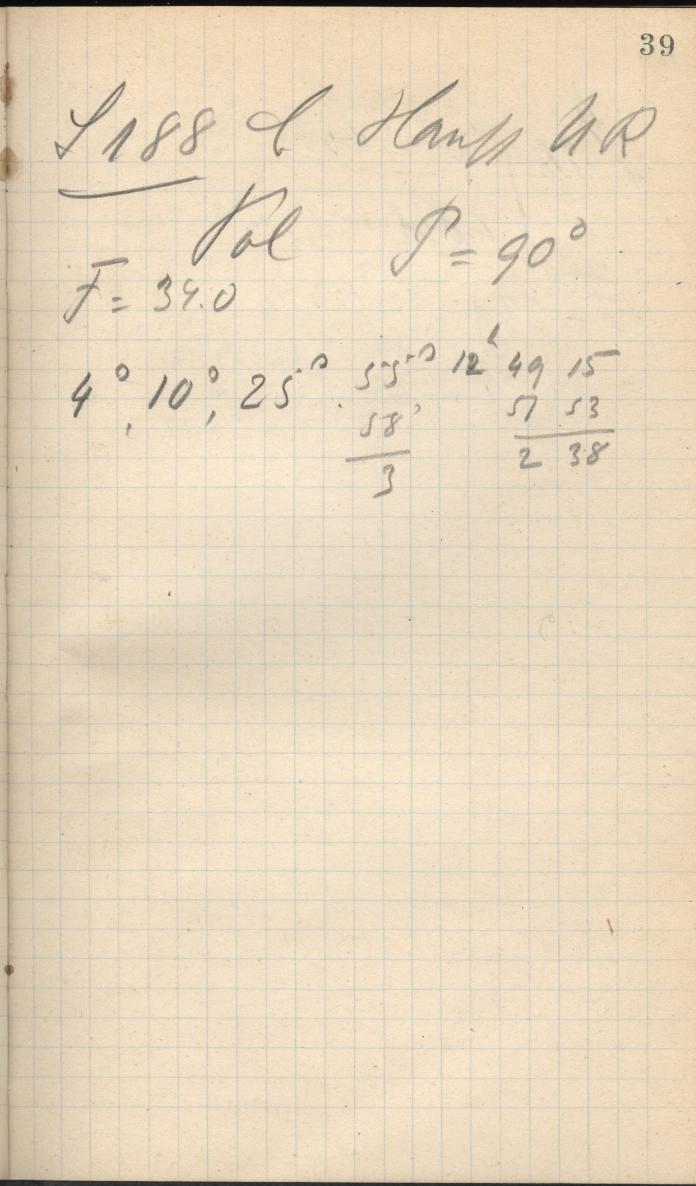 39
S 188 C Hauff UR
Pol P = 90°
F = 34.0
4°, 10°, 25° 55° 12h 49 15
58 51 53
3 2 38